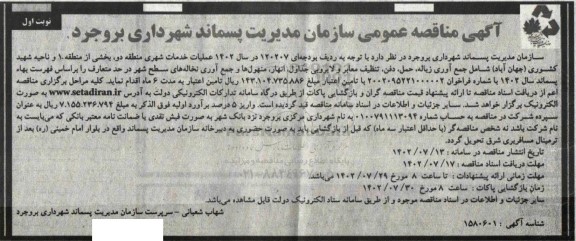 نوبت اول
آگهی مناقصه عمومی سازمان مدیریت پسماند شهرداری بروجرد
سازمان مدیریت پسماند شهرداری بروجرد در نظر دارد با توجه به ردیف بودجه‌ای ۱۲۰۲۰۷ در سال ۱۴۰۲ عملیات خدمات شهری منطقه دو، بخشی از منطقه ۱ و ناحیه شهید
کشوری (جهان آباد) شامل جمع آوری زباله، حمل، دفن، تنظیف معابر و لایروبی جداول، انهار، منهول‌ها و جمع آوری نخاله‌های سطح شهر در حد متعارف را براساس فهرست بهاء
پسماند سال ۱۴۰۲ با شماره فراخوان ۲۰۰۲۰۹۵۴۲۱۰۰۰۰۰۲ با تامین اعتبار مبلغ ۱۴۳.۱۰۴.۷۳۵.۸۸۶ ریال با تامین اعتبار به مدت ۶ ماه اقدام نماید. کلیه مراحل برگزاری مناقصه
اعم از دریافت اسناد مناقصه تا ارائه پیشنهاد قیمت مناقصه گران و بازگشایی پاکات از طریق درگاه سامانه تدارکات الکترونیکی دولت به آدرس www.setadiran.ir به صورت
الکترونیک برگزار خواهد شد. سایر جزئیات و اطلاعات در اسناد مناقصه قید گردیده است. واریز ۵ درصد برآورد اولیه فوق الذکر به مبلغ ۷.۱۵۵.۲۳۶.۷۹۴ ریال به عنوان
سپرده شرکت در مناقصه به حساب شماره ۰۱۰۰۷۹۱۱۱۳۰۹۴ به نام شهرداری مرکزی بروجرد نزد بانک شهر به صورت فیش نقدی یا ضمانت نامه معتبر بانکی که می‌بایست به
نام شرکت باشد نه شخص مناقصه‌گر (با حداقل اعتبار سه ماه) که قبل از بازگشایی باید به صورت حضوری به دبیرخانه سازمان مدیریت پسماند واقع در بلوار امام خمینی (ره) بعد از
ترمینال مسافربری شرق تحویل گردد.
تاریخ انتشار مناقصه در سامانه : ۱۴۰۲/۰۷/۱۳
مهلت دریافت اسناد مناقصه : ۱۴۰۲/۰۷/۱۷
مهلت زمانی ارائه پیشنهادات : تا ساعت ۸ مورخ ۱۴۰۲/۰۷/۲۹ می‌باشد.
زمان بازگشایی پاکات : ساعت ۸ مورخ ۱۴۰۲/۰۷/۳۰
سایر جزئیات و اطلاعات در اسناد مناقصه موجود و از طریق سامانه ستاد الکترونیک دولت قابل مشاهده می‌باشد.
شهاب شعبانی - سرپرست سازمان مدیریت پسماند شهرداری بروجرد
شناسه آگهی : ۱۵۸۰۶۰۱